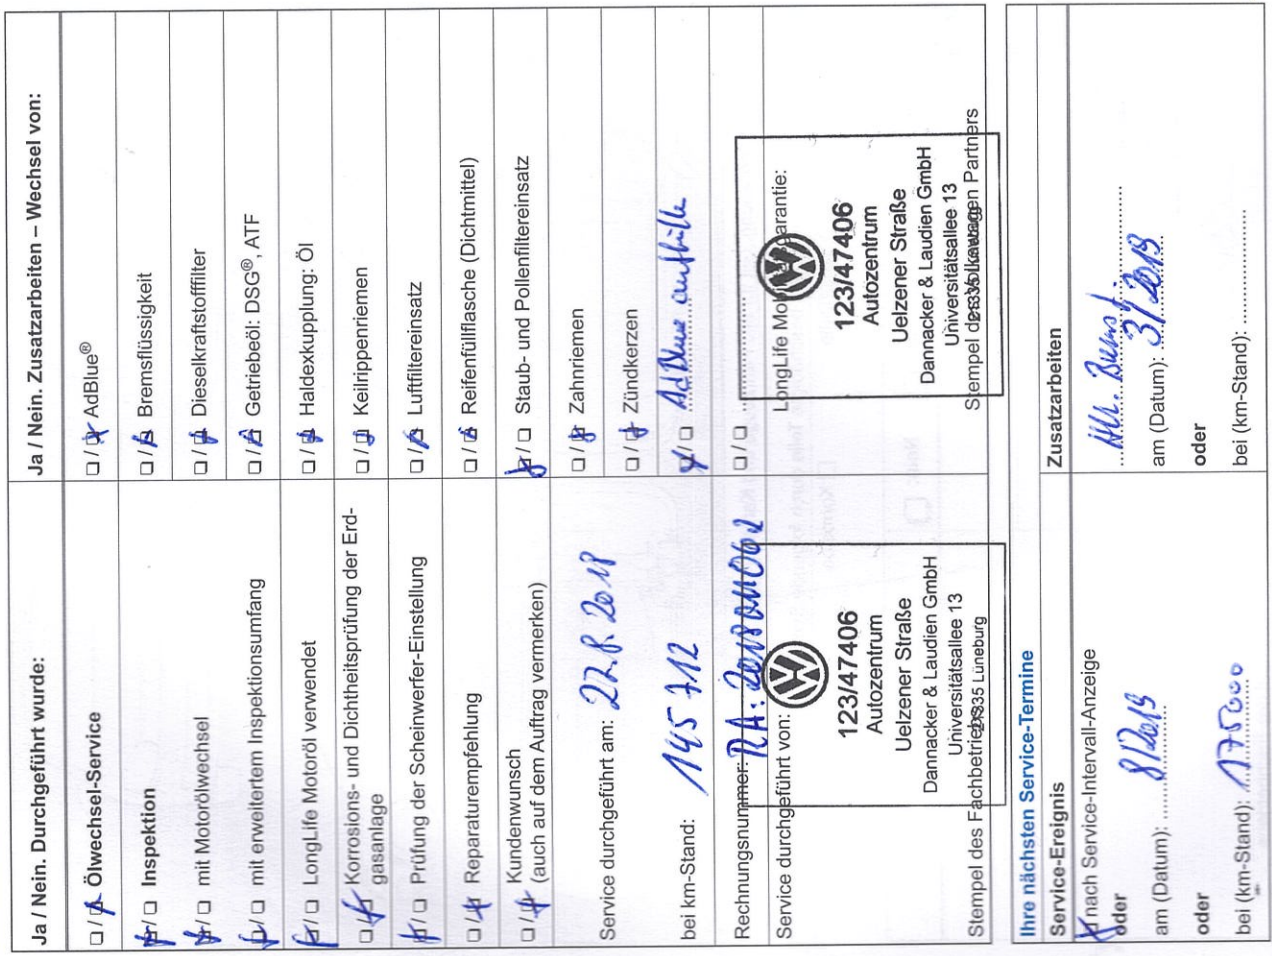 Ja / Nein. Durchgeführt wurde:
☐ / ☒ Ölwechsel-Service
☒ / ☐ Inspektion
☒ / ☐ mit Motorölwechsel
☒ / ☐ mit erweitertem Inspektionsumfang
☒ / ☐ LongLife Motoröl verwendet
☐ / ☒ Korrosions- und Dichtheitsprüfung der Erd-
gasanlage
☒ / ☐ Prüfung der Scheinwerfer-Einstellung
☐ / ☒ Reparaturempfehlung
☐ / ☒ Kundenwunsch
(auch auf dem Auftrag vermerken)
Service durchgeführt am: 22.8.2018
bei km-Stand: 145 712
Rechnungsnummer: RA:
Service durchgeführt von:
123/47406
Autozentrum
Uelzener Straße
Dannacker & Laudien GmbH
Universitätsallee 13
21335 Lüneburg
Stempel des Fachbetriebes
Ja / Nein. Zusatzarbeiten – Wechsel von:
☐ / ☒ AdBlue®
☐ / ☒ Bremsflüssigkeit
☐ / ☒ Dieselkraftstofffilter
☐ / ☒ Getriebeöl: DSG®, ATF
☐ / ☒ Haldexkupplung: Öl
☐ / ☒ Keilrippenriemen
☐ / ☒ Luftfiltereinsatz
☐ / ☒ Reifenfüllflasche (Dichtmittel)
☒ / ☐ Staub- und Pollenfiltereinsatz
☐ / ☒ Zahnriemen
☐ / ☒ Zündkerzen
☒ / ☐ AdBlue auffülle
☐ / ☐
LongLife Mobilitätsgarantie:
123/47406
Autozentrum
Uelzener Straße
Dannacker & Laudien GmbH
Universitätsallee 13
21335 Lüneburg
Stempel des Volkswagen Partners
Ihre nächsten Service-Termine
Service-Ereignis
☒ nach Service-Intervall-Anzeige
oder
am (Datum): 8/2019
oder
bei (km-Stand): 175000
Zusatzarbeiten
am (Datum): 3/2019
oder
bei (km-Stand):